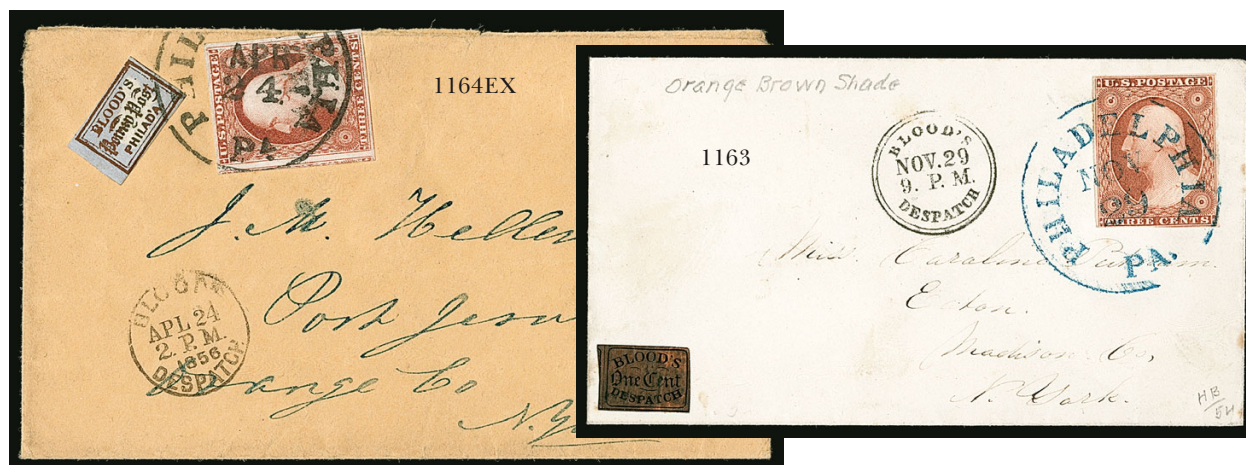 1164EX
BLOOD'S
Penny Post
PHILAD'A
PHIL
APR
24
PA
U.S. POSTAGE
THREE CENTS
J. M. Heller
Port Jerv
Orange Co
N.Y.
BLOOD'S
APL 24
2. P. M.
1856
DESPATCH
Orange Brown Shade
1163
BLOOD'S
NOV. 29
9. P. M.
DESPATCH
U.S. POSTAGE
THREE CENTS
PHILADELPHIA
NOV
29
PA.
Miss. Caroline
Eaton.
Madison Co,
N. York.
BLOOD'S
One Cent
DESPATCH
HB
54